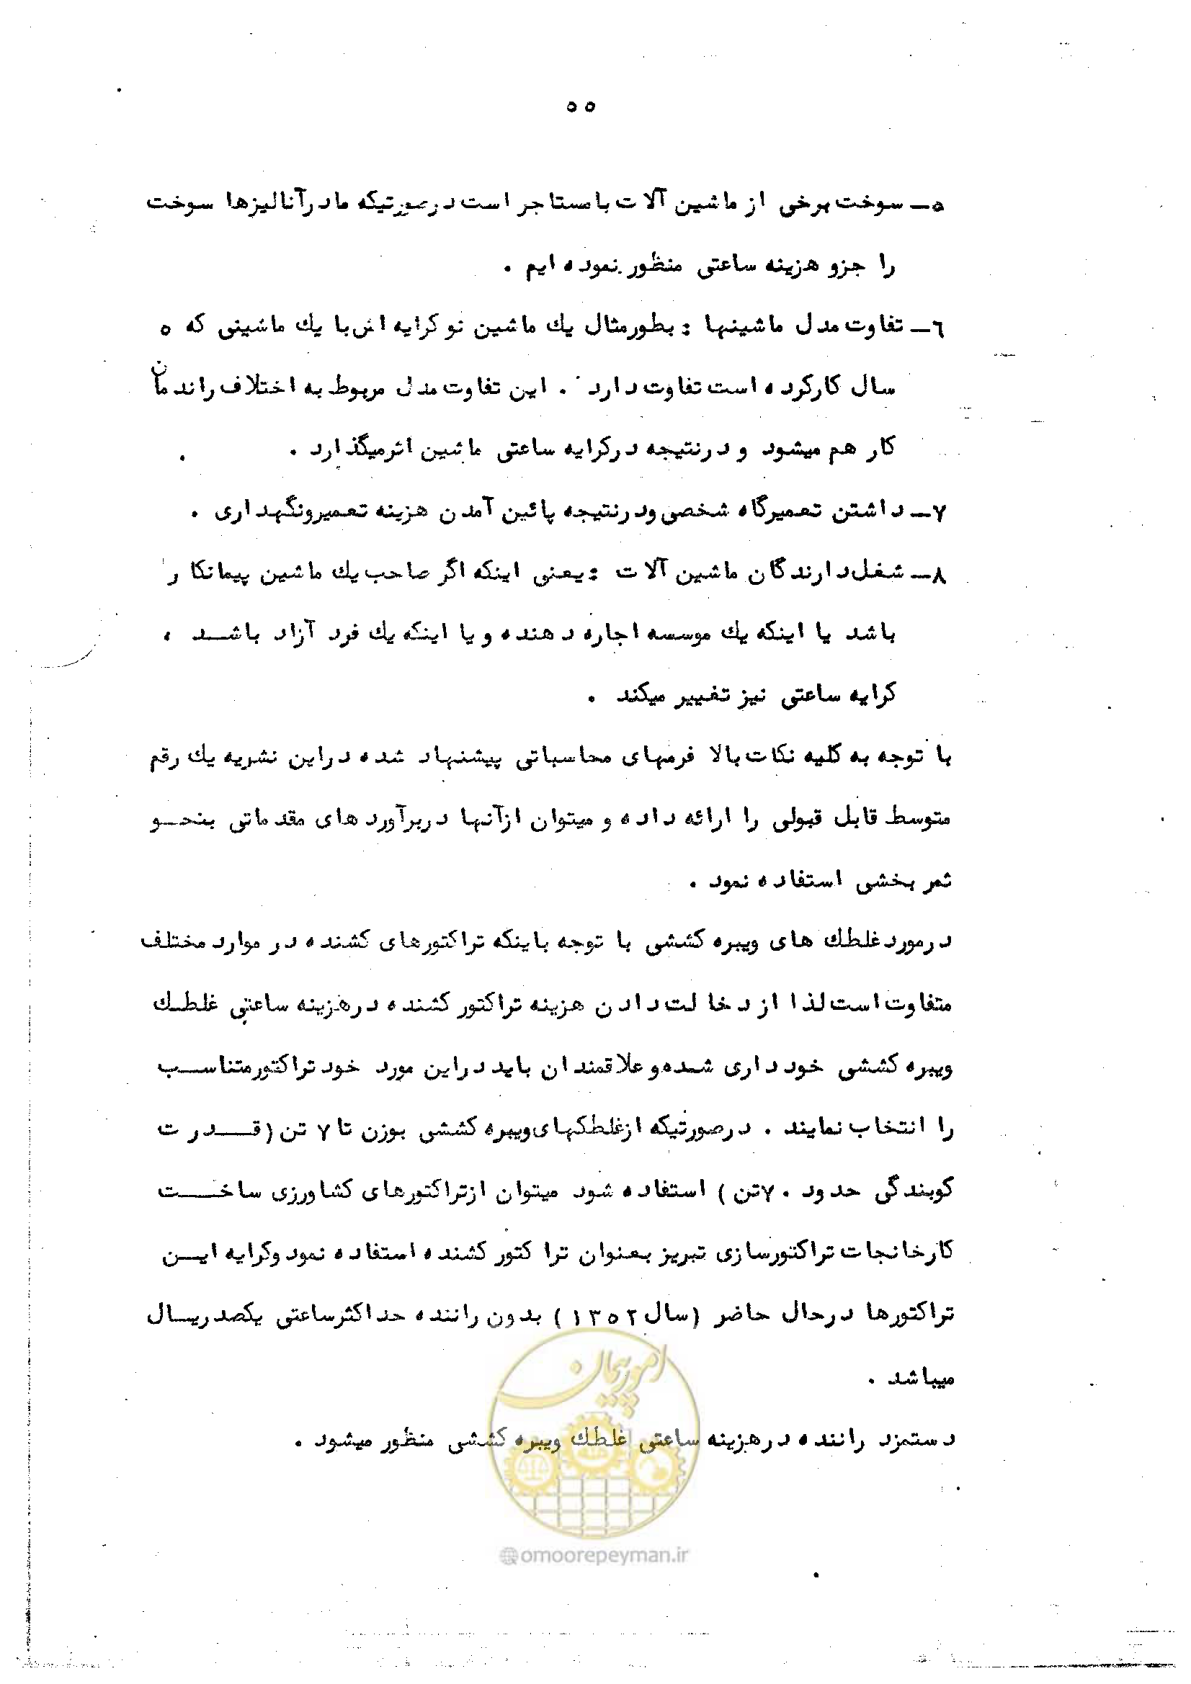 ۵۵
۵ـ سوخت برخی از ماشین آلات با مستاجر است درصورتیکه مادرآنالیزها سوخت
را جزو هزینه ساعتی منظور نموده ایم .
۶ـ تفاوت مدل ماشینها : بطورمثال یك ماشین نو کرایه اش با یك ماشینی که ۵
سال کارکرده است تفاوت دارد . این تفاوت مدل مربوط به اختلاف راندمان
کار هم میشود و درنتیجه درکرایه ساعتی ماشین اثرمیگذارد .
۷ـ داشتن تعمیرگاه شخصی ودرنتیجه پائین آمدن هزینه تعمیرونگهداری .
۸ـ شغل دارندگان ماشین آلات : یعنی اینکه اگر صاحب یك ماشین پیمانکار
باشد یا اینکه یك موسسه اجاره دهنده و یا اینکه یك فرد آزاد باشــد ،
کرایه ساعتی نیز تغییر میکند .
با توجه به کلیه نکات بالا فرمهای محاسباتی پیشنهاد شده دراین نشریه یك رقم
متوسط قابل قبولی را ارائه داده و میتوان ازآنها دربرآوردهای مقدماتی بنحــو
ثمر بخشی استفاده نمود .
درمورد غلطك های ویبره کششی با توجه باینکه تراکتورهای کشنده در موارد مختلف
متفاوت است لذا از دخالت دادن هزینه تراکتور کشنده درهزینه ساعتی غلطـك
ویبره کششی خودداری شده و علاقمندان باید دراین مورد خود تراکتورمتناســب
را انتخاب نمایند . درصورتیکه ازغلطکهای ویبره کششی بوزن تا ۷ تن (قــدرت
کوبندگی حدود ۷۰تن ) استفاده شود میتوان ازتراکتورهای کشاورزی ساخــت
کارخانجات تراکتورسازی تبریز بعنوان تراکتور کشنده استفاده نمود وکرایه ایــن
تراکتورها درحال حاضر (سال ۱۳۵۲ ) بدون راننده حداکثرساعتی یکصدریـال
میباشد .
دستمزد راننده درهزینه ساعتی غلطك ویبره کششی منظور میشود .
امور پیمان
@omoorepeyman.ir